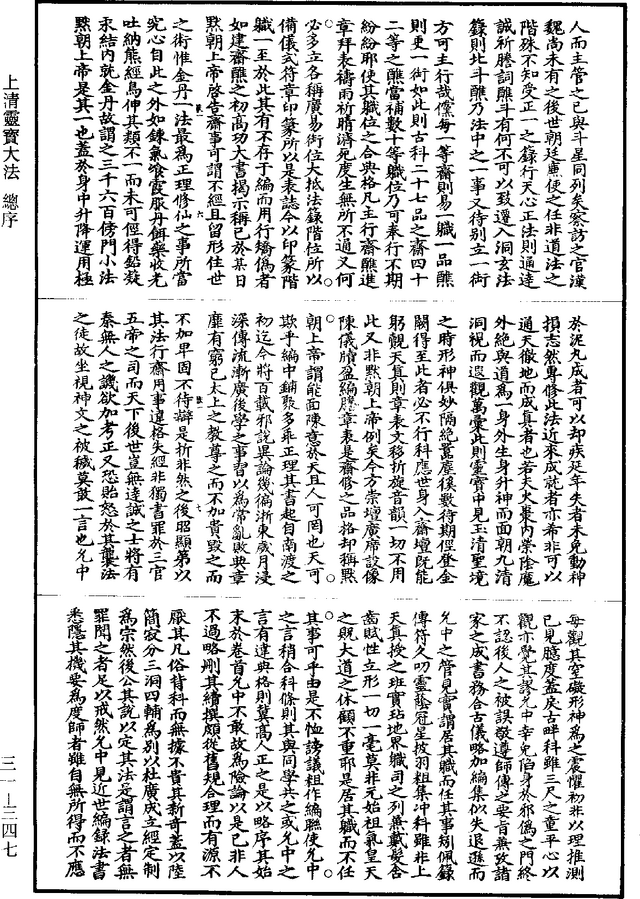 人而主管之已與斗星同列矣察訪之官漢
魏尚未有之後世朝廷廉使之任非道法之
階殊不知受正一之籙行天心正法則通達
誠祈謄詞醮斗有何不可以致遷入洞玄法
籙則北斗醮乃法中之一事又待別立一術
方可主行哉儻每一等齋則易一職一品醮
則更一術如此則古科二十七品之齋四十
二等之醮當補數十等職位乃可奉行不期
紛紛耶使其職位之合與格凡主行齋醮進
章拜表禱雨祈晴濟死度生無所不通又何
必多立各稱廣易術位大抵法籙階位所以
備儀式符章印篆所以是表誌今以印篆階
職一至於此其有不存于編而用行矯僞者
如建齋醮之初高功大書揭示稱已於某日
黙朝上帝啓告齋事可謂不經且留形住世
之術惟金丹一法最爲正理修仙之事所當
究心自此之外如鍊氣飡霞服丹餌藥收光
吐納熊經鳥伸其類不一而未可俓得鉛凝
汞結内就金丹故謂之三千六百傍門小法
黙朝上帝是其一也蓋於身中升降運用極
於泥九成者可以却疾延年失者未免動神
損志然專修此法近來成就者亦希非可以
通天徹地而成眞者也若夫火棗内榮陰魔
外絶與道爲一身外生身升神而面朝九清
洞視而遐觀萬彙此則靈寶中見玉清聖境
之時形神俱妙隔絶囂塵徯數待期徑登金
闕得至此者必不行科應世身入齋壇既能
躬覿天眞則章表文移折旋音韻一切不用
此又非黙朝上帝例矣今方崇壇廣席設像
陳儀牘盈編牒章表是齋修之品格却稱黙
朝上帝謂能面陳意於天且人可罔也天可
欺乎編中鋪聚多乖正理其書起自南渡之
初迄今將百載邪說異論幾徧浙東歲月浸
深傳流漸廣後學之事習以爲常亂敗典章
靡有窮已太上之教尊之而不加貴毀之而
不加卑固不待辯是折非然之後昭顯第以
其法行齋用事違格失經非獨書罪於三官
五帝之司而天下後世豈無達誠之士將有
秦無人之譏欲加考正又恐貽怒於其襲法
之徒故坐視神文之被穢莫敢一言也允中
每觀其空礙形神爲之震懼初非以理推測
已見臆度蓋戾古畔科雖三尺之童平心以
觀亦覺其謬允中幸免陷身於邪僞之門終
不認後人之被誤敬遵師傳之要旨兼攷諸
家之成書務合古儀略加編集似失退遜而
允中之管見實謂居其職而任其事矧佩錄
傳符久叨靈蔭冠星披羽粗集沖科雖非上
天眞授之班實玷地界職司之列兼戴髪含
齒賦性立形一切一毫莫非元始祖氣皇天
之貺大道之休顧不重耶是居其職而不任
其事可乎由是不恤謗議粗作編聯使允中
之言稍合科條則其與同學共之或允中之
言有違典格則冀高人正之是以略序其始
末於卷首允中不敢故爲險論以是已非人
不過略剛其續撰頗從舊規合理而有源不
厭其凡俗背科而無據不貴其新奇蓋以陸
簡寂分三洞四輔爲別以杜廣成立經定制
爲宗然後公其說以定其法是謂言之者無
罪聞之者足以戒然允中見近世編錄法書
悉隱其機要爲度師者雖自無所得而不應
上清靈寶大法　總序
三一—三四七